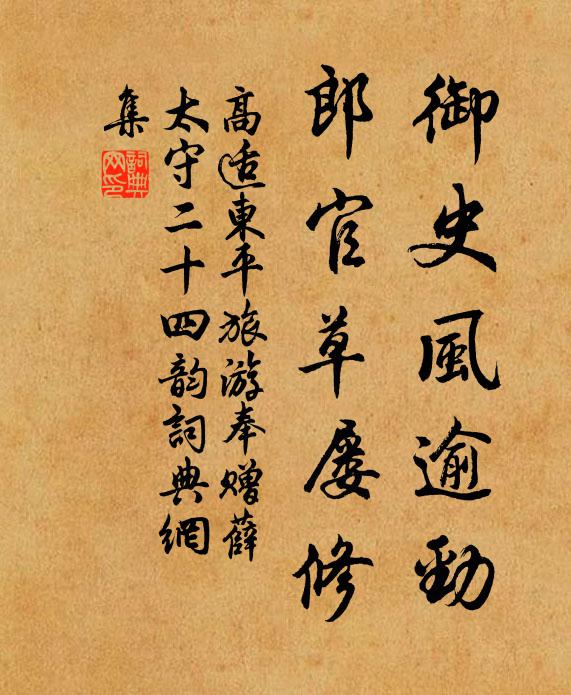 御史風逾勁
郎官草屡修
高适東平旅游奉赠薛
太守二十四韵詞典網
集
詞典
网印